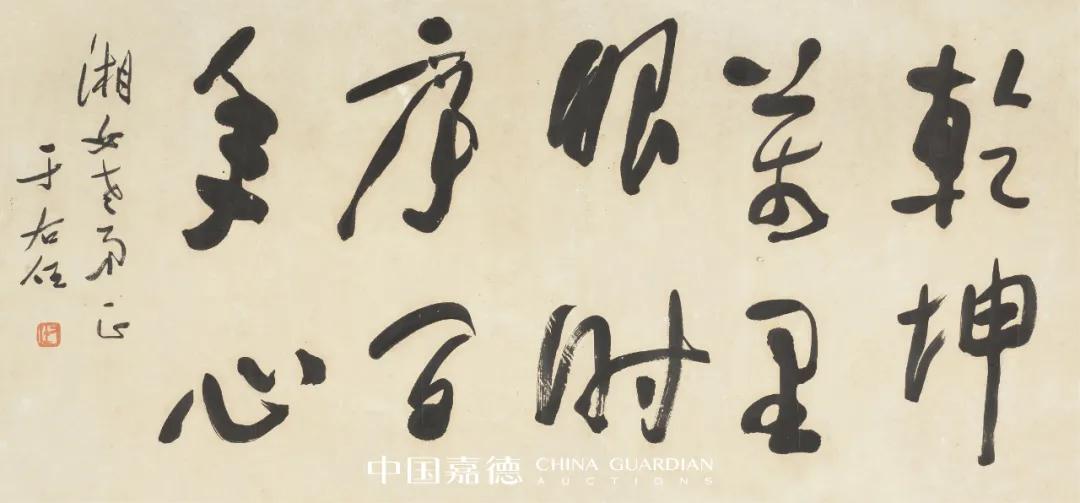 乾坤
萬里
眼時
序百
年心
湘老弟正
于右任
中国嘉德 CHINA GUARDIAN
AUCTIONS